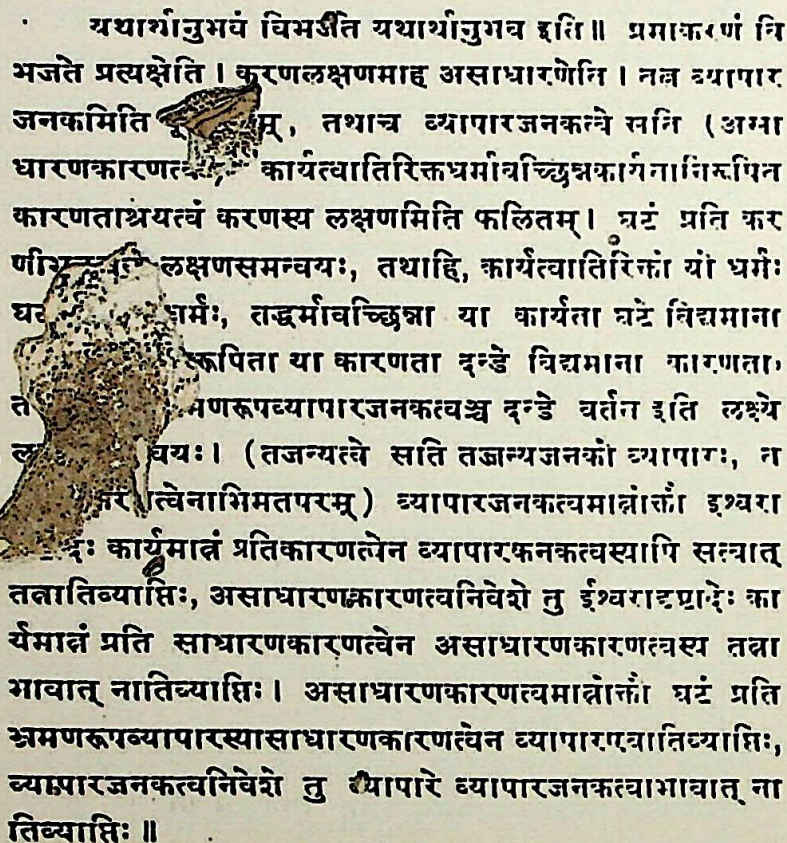 यथार्थानुभवं विभजते यथार्थानुभव इति॥ प्रमाकरणं वि
भजते प्रत्यक्षेति। करणलक्षणमाह असाधारणेति। तत्र व्यापार
जनकमिति , तथाच व्यापारजनकत्वे सति (असा
धारणकारणत्व कार्यत्वातिरिक्तधर्मावच्छिन्नकार्यतानिरूपित
कारणताश्रयत्वं करणस्य लक्षणमिति फलितम्। घटं प्रति कर
लक्षणसमन्वयः, तथाहि, कार्यत्वातिरिक्तो यो धर्मः
तद्धर्मावच्छिन्ना या कार्यता घटे विद्यमाना
या कारणता दन्डे विद्यमाना कारणता,
दन्डे वर्तत इति लक्ष्ये
(तजन्यत्वे सति तज्जन्यजनको व्यापारः, त
व्यापारजनकत्वमात्रोक्तौ इश्वरा
कार्यमात्रं प्रतिकारणत्वेन व्यापारकनकत्वस्यापि सत्वात्
तत्रातिव्याप्तिः, असाधारणकारणत्वनिवेशे तु ईश्वरादृष्टादेः का
र्यमात्रं प्रति साधारणकारणत्वेन असाधारणकारणत्वस्य तत्रा
भावात् नातिव्याप्तिः। असाधारणकारणत्वमात्रोक्तौ घटं प्रति
भ्रमणरूपव्यापारस्यासाधारणकारणत्वेन व्यापारएवातिव्याप्तिः,
व्यापारजनकत्वनिवेशे तु व्यापारे व्यापारजनकत्वाभावात् ना
तिव्याप्तिः॥